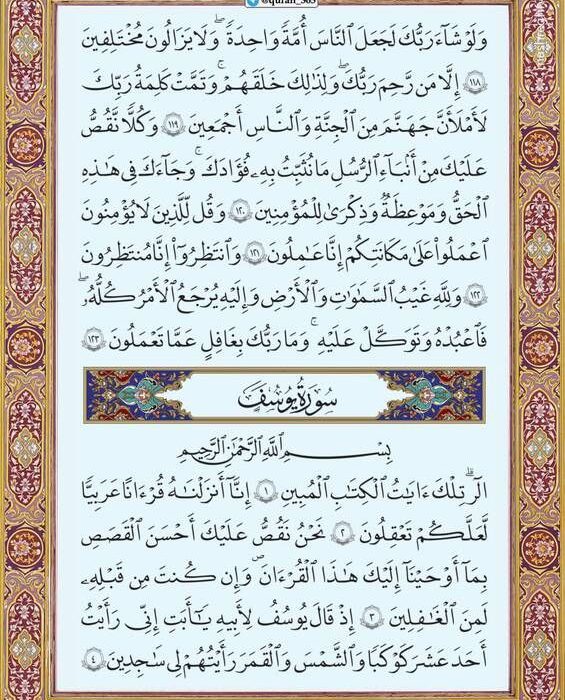 @quran_365
وَلَوْ شَآءَ رَبُّكَ لَجَعَلَ ٱلنَّاسَ أُمَّةً وَٰحِدَةً ۖ وَلَا يَزَالُونَ مُخْتَلِفِينَ
١١٨ إِلَّا مَن رَّحِمَ رَبُّكَ ۚ وَلِذَٰلِكَ خَلَقَهُمْ ۗ وَتَمَّتْ كَلِمَةُ رَبِّكَ
لَأَمْلَأَنَّ جَهَنَّمَ مِنَ ٱلْجِنَّةِ وَٱلنَّاسِ أَجْمَعِينَ ١١٩ وَكُلًّا نَّقُصُّ
عَلَيْكَ مِنْ أَنۢبَآءِ ٱلرُّسُلِ مَا نُثَبِّتُ بِهِۦ فُؤَادَكَ ۚ وَجَآءَكَ فِى هَٰذِهِ
ٱلْحَقُّ وَمَوْعِظَةٌ وَذِكْرَىٰ لِلْمُؤْمِنِينَ ١٢٠ وَقُل لِّلَّذِينَ لَا يُؤْمِنُونَ
ٱعْمَلُوا۟ عَلَىٰ مَكَانَتِكُمْ إِنَّا عَٰمِلُونَ ١٢١ وَٱنتَظِرُوٓا۟ إِنَّا مُنتَظِرُونَ
١٢٢ وَلِلَّهِ غَيْبُ ٱلسَّمَٰوَٰتِ وَٱلْأَرْضِ وَإِلَيْهِ يُرْجَعُ ٱلْأَمْرُ كُلُّهُۥ
فَٱعْبُدْهُ وَتَوَكَّلْ عَلَيْهِ ۚ وَمَا رَبُّكَ بِغَٰفِلٍ عَمَّا تَعْمَلُونَ ١٢٣
سُورَةُ يُوسُفَ
بِسْمِ ٱللَّهِ ٱلرَّحْمَٰنِ ٱلرَّحِيمِ
الٓر ۚ تِلْكَ ءَايَٰتُ ٱلْكِتَٰبِ ٱلْمُبِينِ ١ إِنَّآ أَنزَلْنَٰهُ قُرْءَٰنًا عَرَبِيًّا
لَّعَلَّكُمْ تَعْقِلُونَ ٢ نَحْنُ نَقُصُّ عَلَيْكَ أَحْسَنَ ٱلْقَصَصِ
بِمَآ أَوْحَيْنَآ إِلَيْكَ هَٰذَا ٱلْقُرْءَانَ وَإِن كُنتَ مِن قَبْلِهِۦ
لَمِنَ ٱلْغَٰفِلِينَ ٣ إِذْ قَالَ يُوسُفُ لِأَبِيهِ يَٰٓأَبَتِ إِنِّى رَأَيْتُ
أَحَدَ عَشَرَ كَوْكَبًا وَٱلشَّمْسَ وَٱلْقَمَرَ رَأَيْتُهُمْ لِى سَٰجِدِينَ ٤